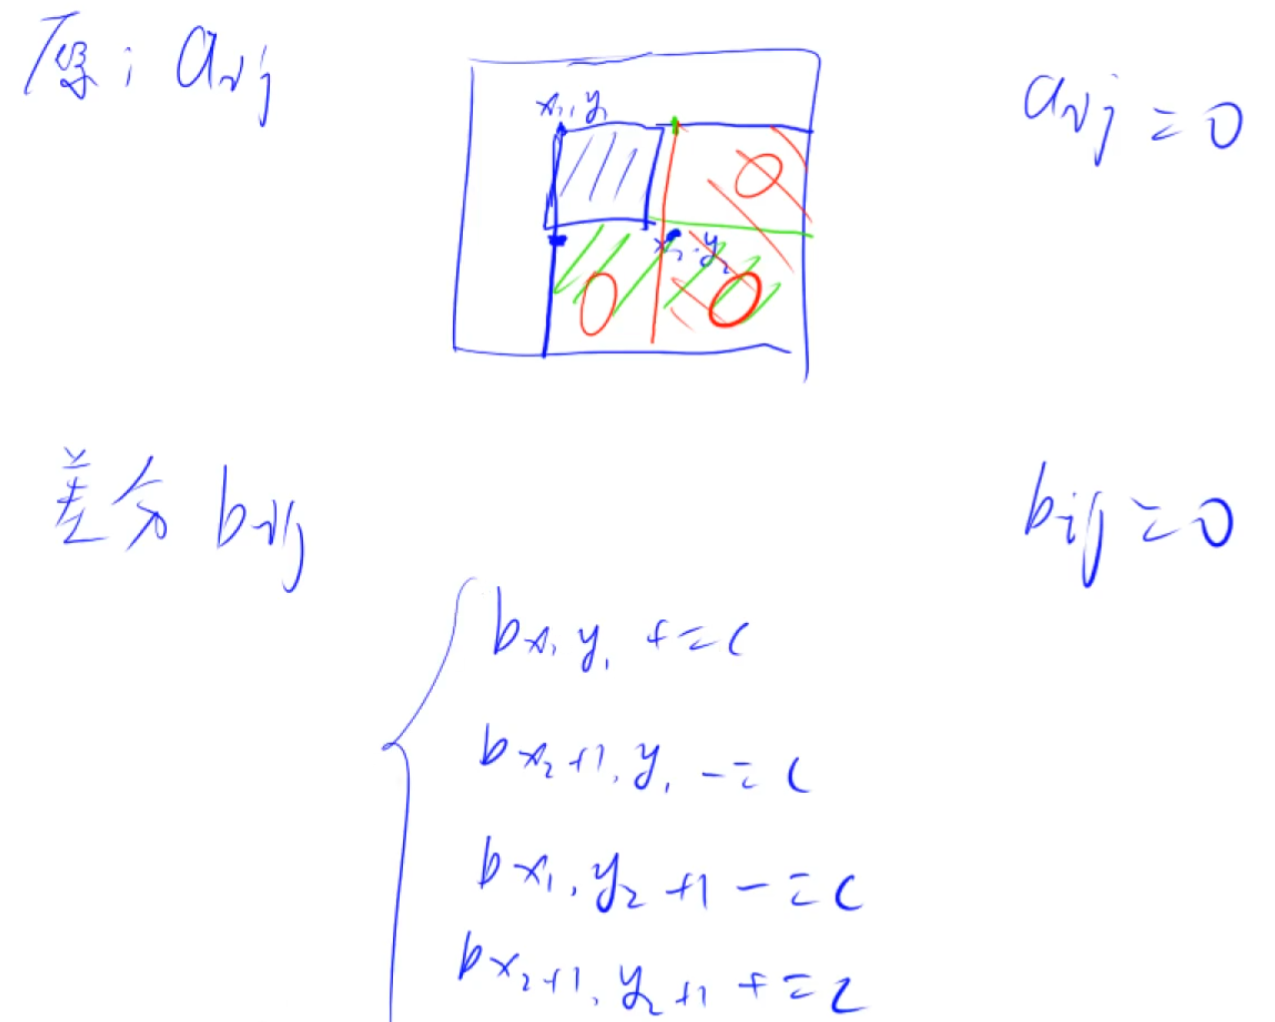 原: aij
aij = 0
x1, y1
0
x2, y2
0 0
差分 bij
bij = 0
bx1 y1 += c
bx2+1, y1 -= c
bx1, y2+1 -= c
bx2+1, y2+1 += c